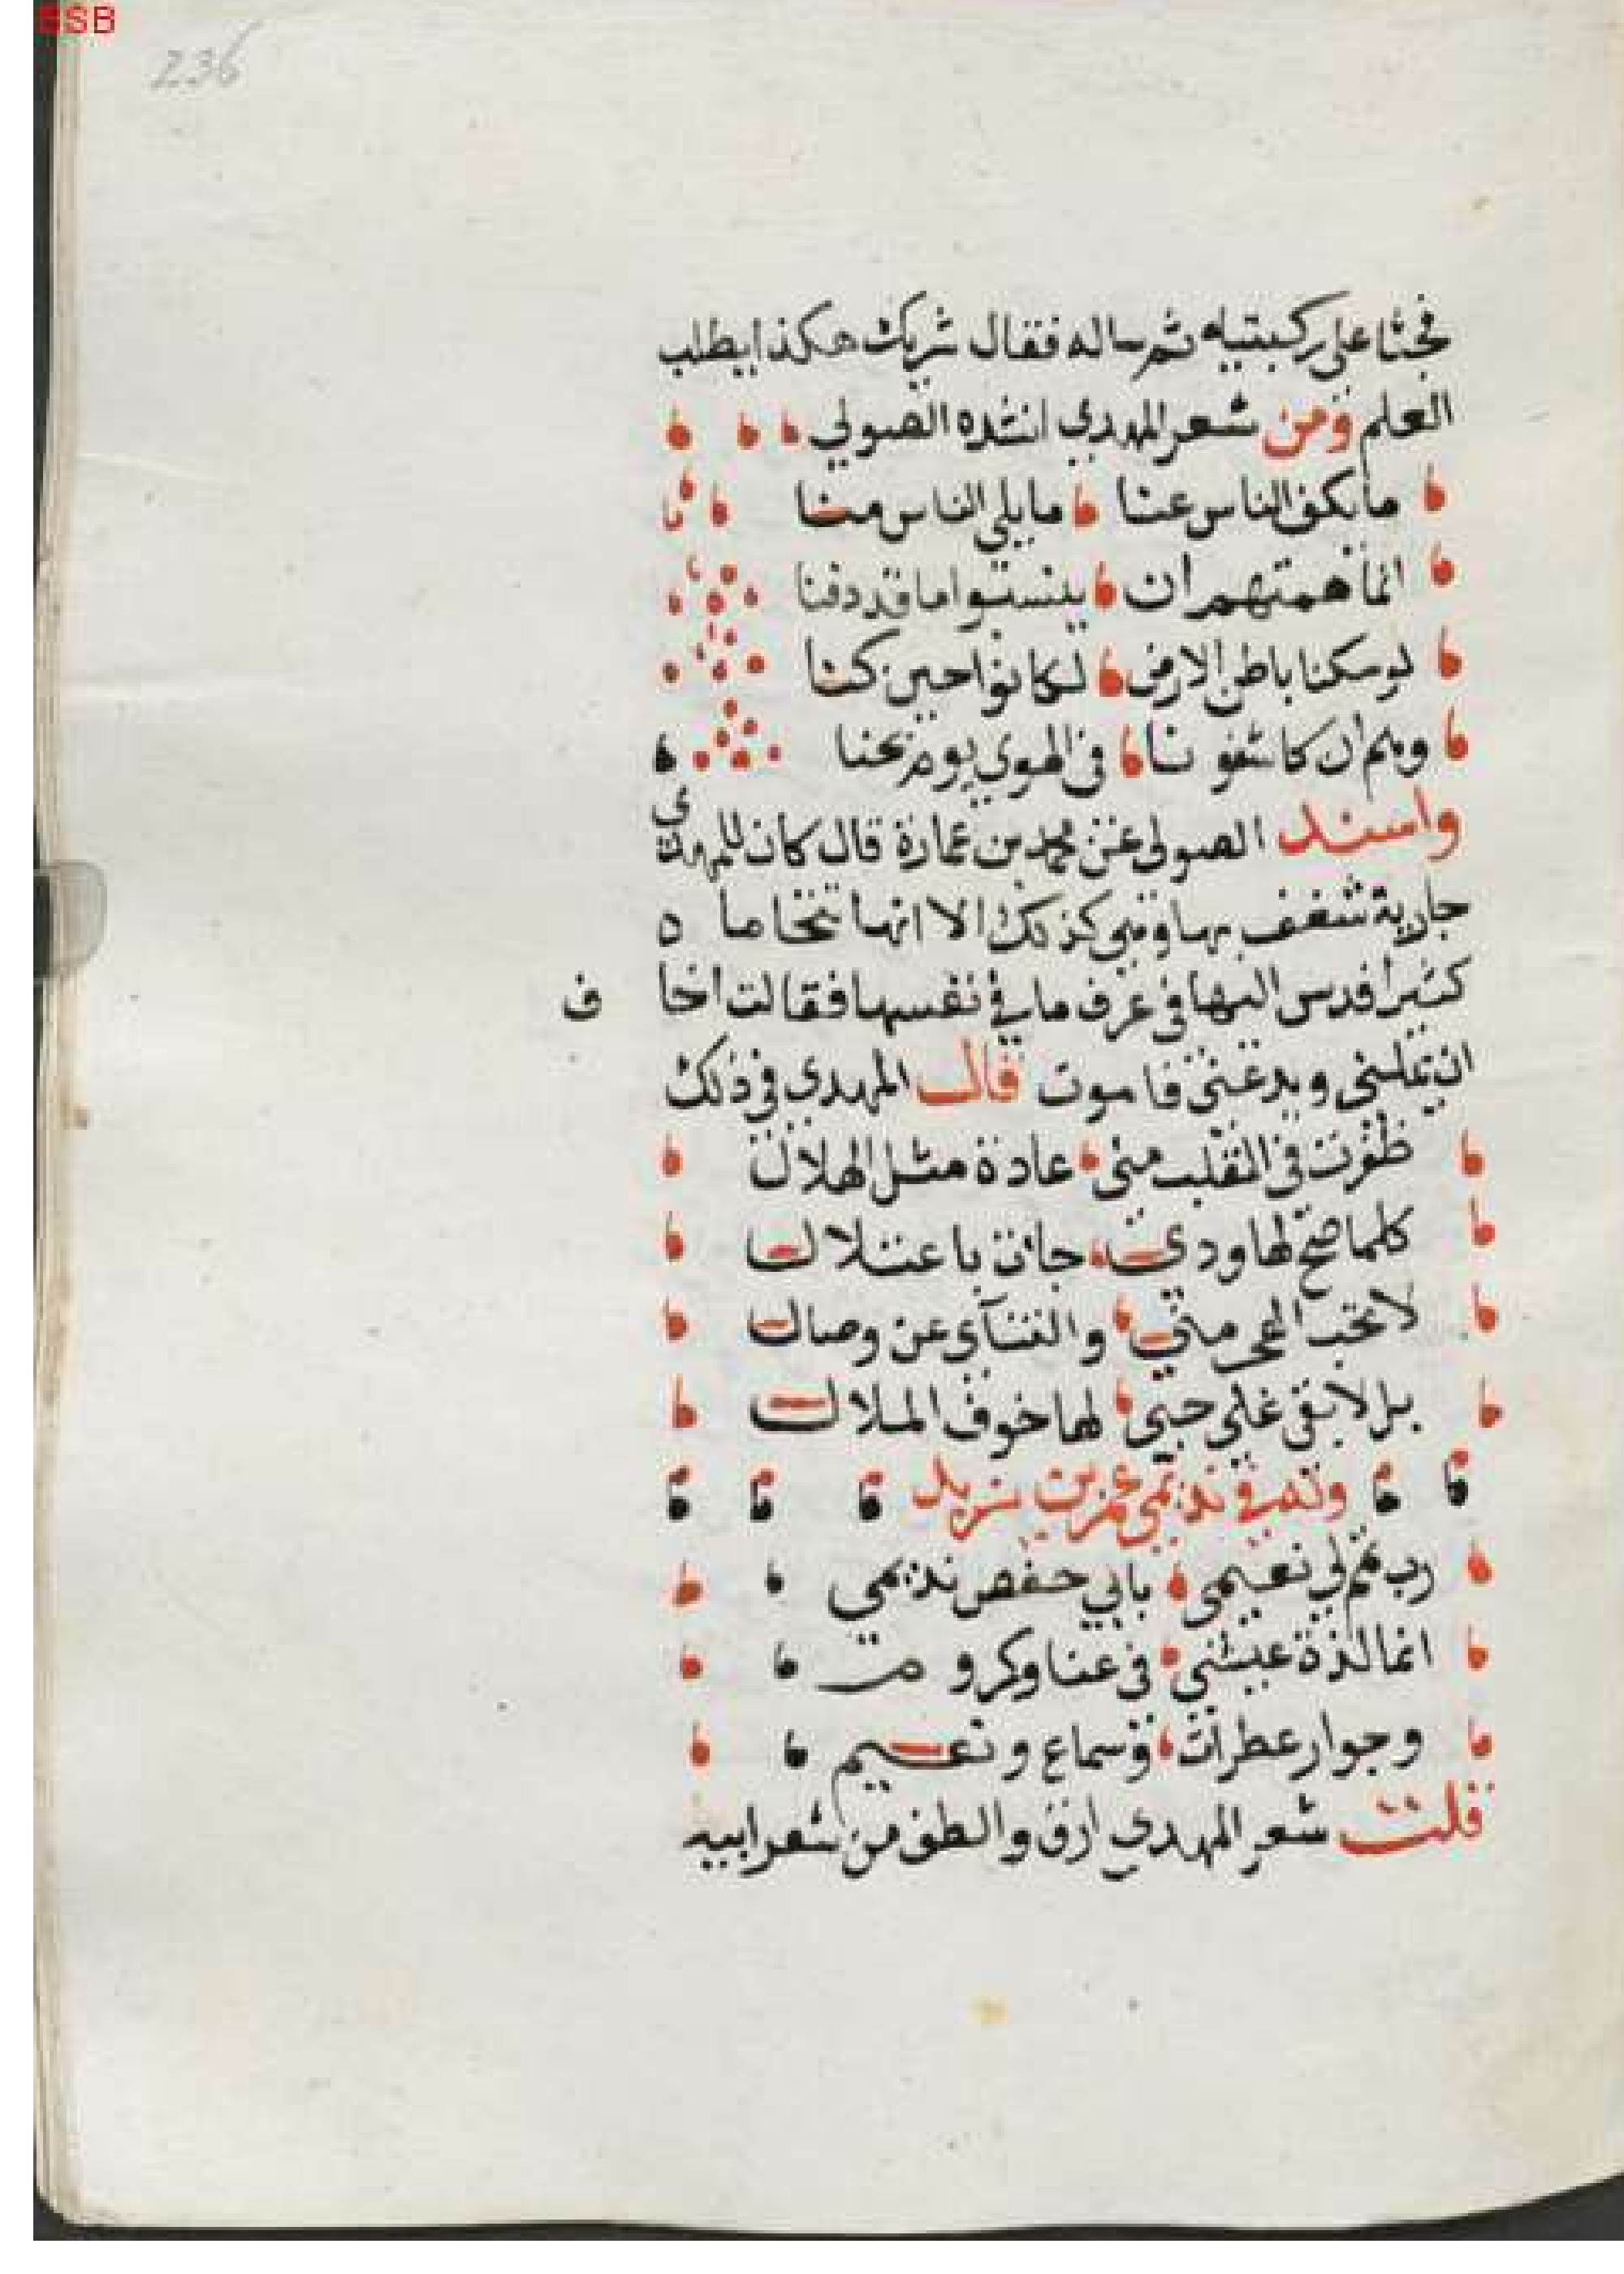 BSB
236
فجثا على ركبتيه ثم ساله فقال شريك هكذا يطلب
العلم ومن شعر المهدي انشده الصولي
ما يكف الناس عنا ما يلي الناس منا
انما همتهم ان ينبشوا ما قد دفنا
لو سكنا باطن الارض لكانوا حين كنا
وهم ان كاشفونا في الهوي يوم نحنا
واسند الصولي عن محمد بن عمارة قال كان للمهدي
جارية شغف بها وهي كذلك الا انها تتحاما ه
كثيرا فدس اليها في عرف ما في نفسها فقالت اخا ف
ان يملني ويدعني فاموت قال المهدي في ذلك
ظفرت في القلب مني غادة مثل الهلال
كلما صح لها ودي جات باعتلال
لا تحب الهجر مني والتنآي عن وصال
بل لابقي علي حبي لها خوف الملال
وله في نديمي عمر بن بزيد
رب تمم لي نعيمي بابي حفص نديمي
انما لذة عيشي في غنا وكروم
وجوار عطرات وسماع ونعيم
قلت شعر المهدي ارق والطف من شعر ابيه